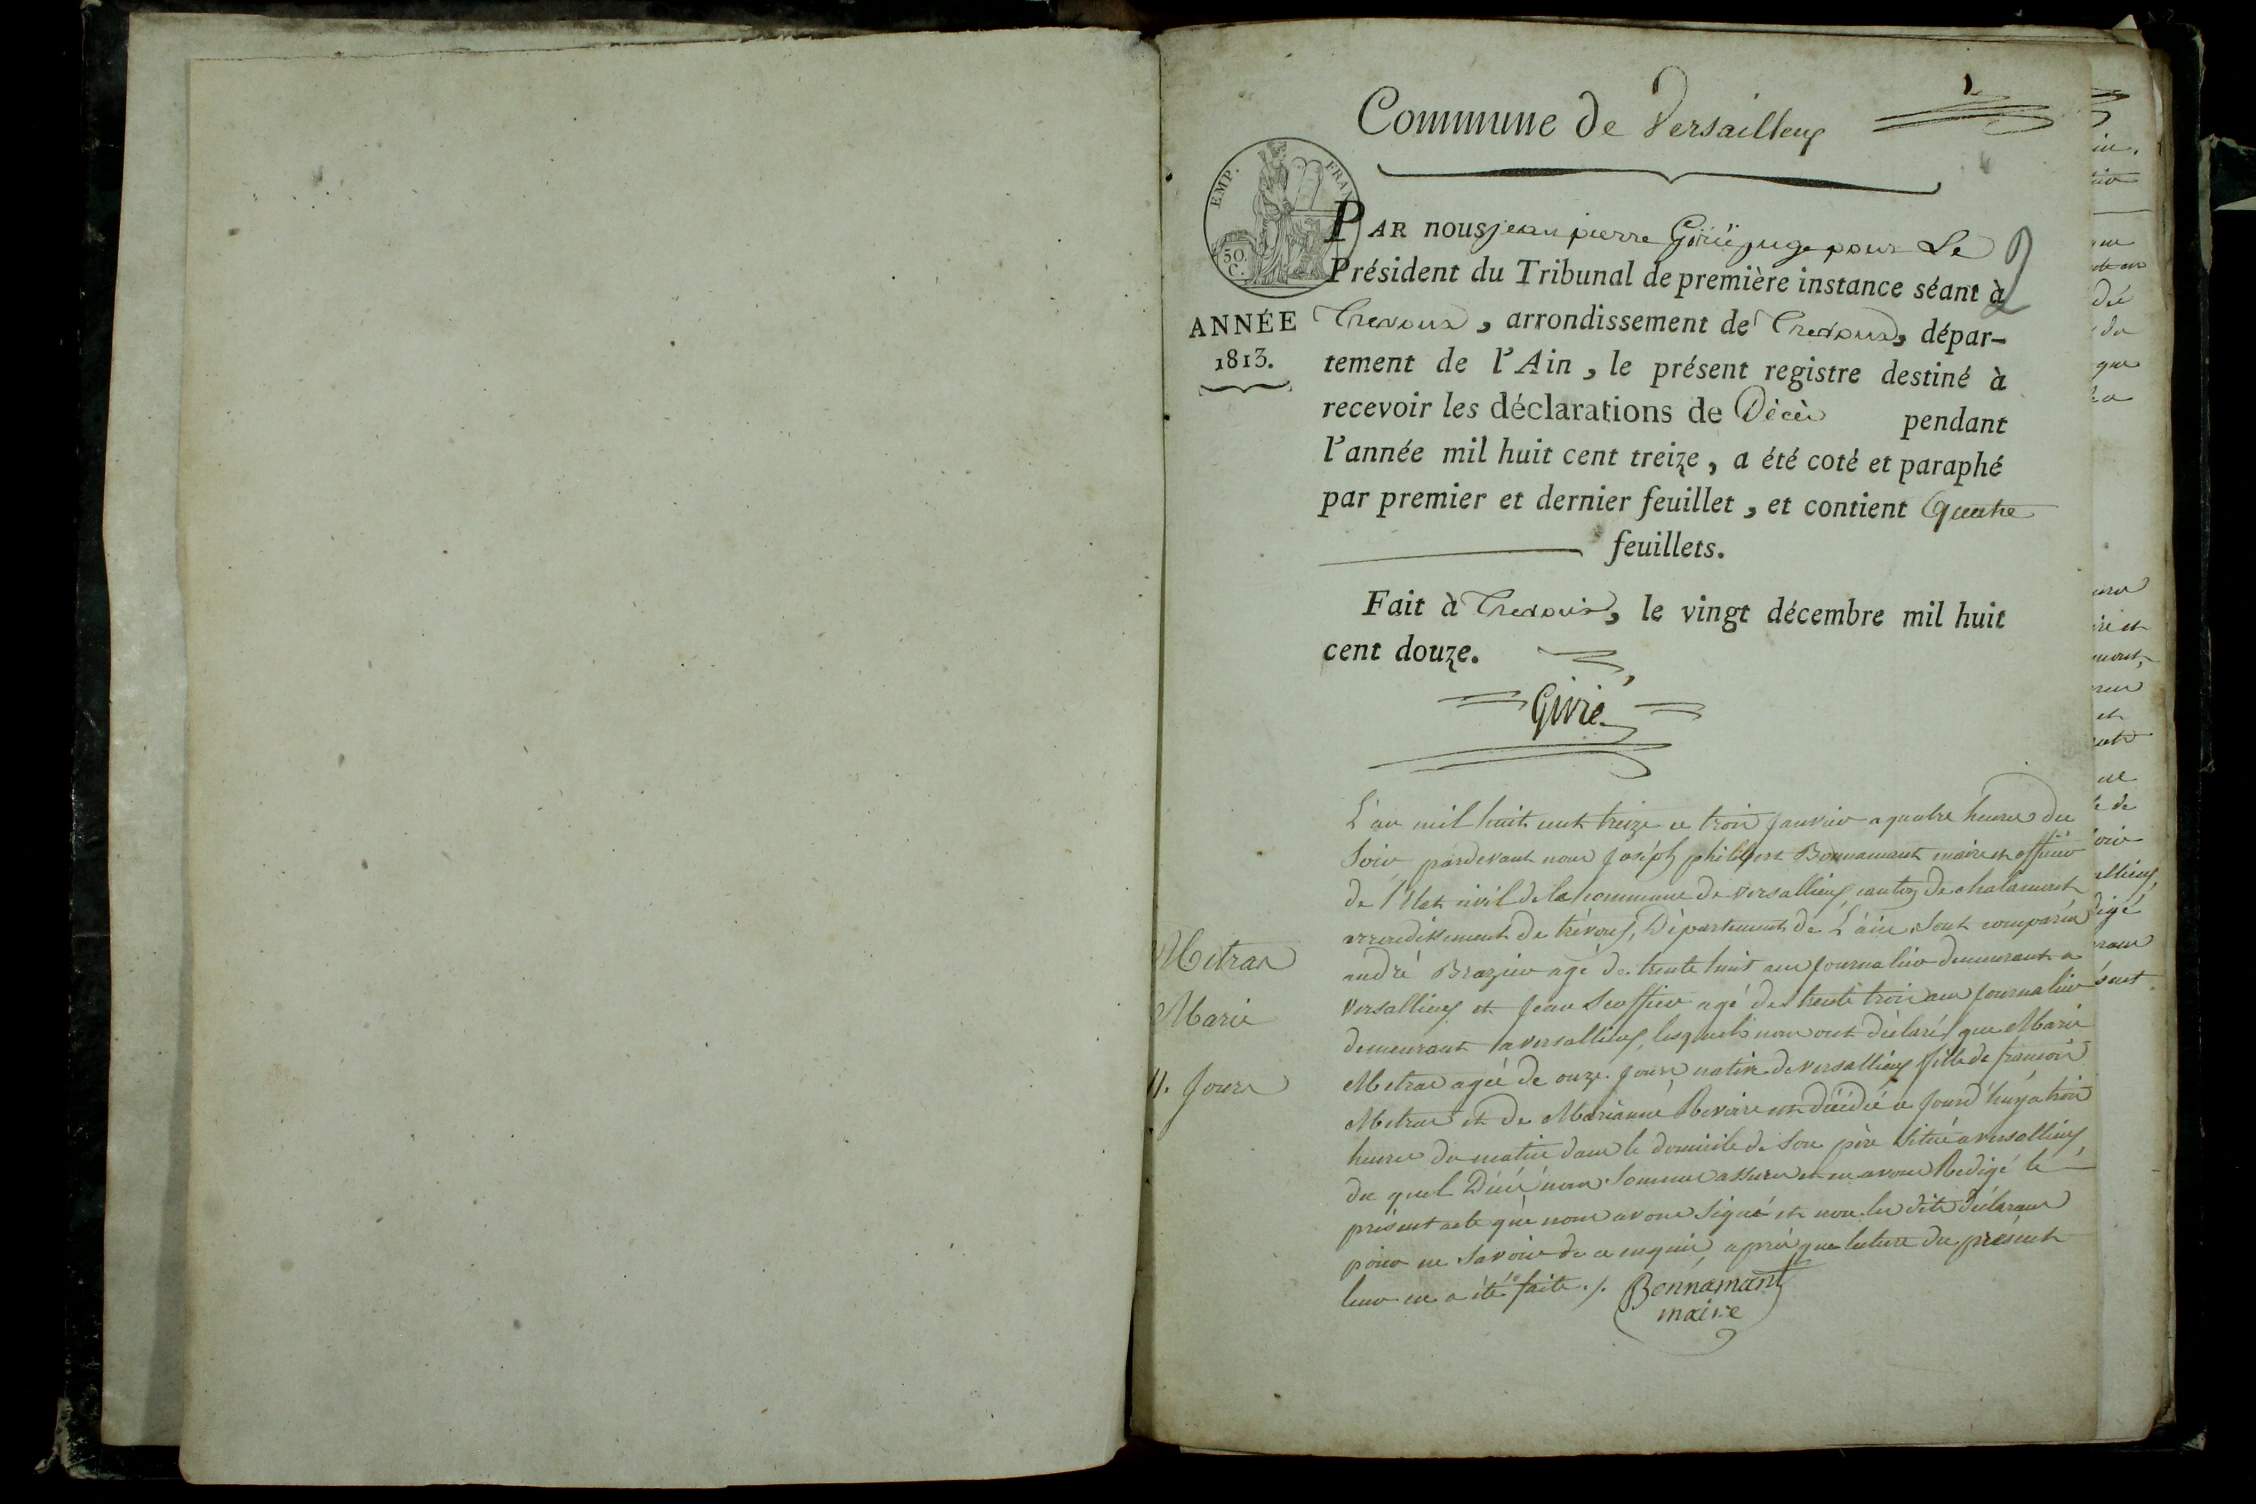 Commune de Versailleux
1
EMP. FRAN
50.
C.
PAR nous jean pierre Girié juge pour Le
2
Président du Tribunal de première instance séant à
Trevoux, arrondissement de Trevoux, dépar-
ANNÉE
1813.
tement de l'Ain, le présent registre destiné à
recevoir les déclarations de Décès pendant
l'année mil huit cent treize, a été coté et paraphé
par premier et dernier feuillet, et contient quatre
feuillets.
Fait à Trevoux, le vingt décembre mil huit
cent douze.
Girié
L'an mil huit cent treize ce trois janvier a quatre heures du
Soir pardevant nous joséph philibert Bonnamant maire et officier
de l'état civil de la commune de versallieux, canton de chalamont
arrondissement de trévoux, Département de L'ain, sont comparus
Metras
andré Brazier agé de trente huit ans journalier demeurant a
Marie
versallieux et jean Seoffier agé de trente trois ans journalier
demeurant a versallieux, lesquels nous ont déclaré que Marie
11. jours
Metras agée de onze jours native de versallieux fille de françois
Metras et de Marianne Revoire est décédée ce jourd'huy a trois
heures du matin dans le domicile de son père situé a versallieux
du quel Décés nous sommes assurés et en avons Redigé le
présent acte que nous avons signé et non les dits déclarans
pour ne savoir de ce enquis, après que lecture du présent
leur en a été faite ./. Bonnamant
maire